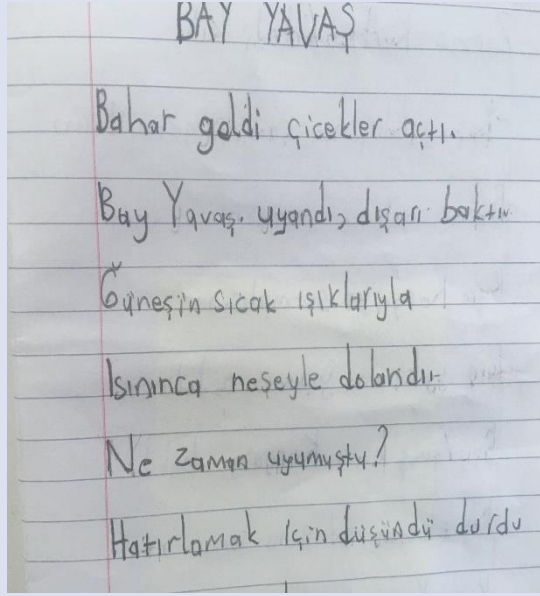 BAY YAVAŞ
Bahar geldi çicekler açtı.
Bay Yavaş, uyandı, dışarı baktı.
Güneşin sıcak ışıklarıyla
Isınınca neşeyle dolandı.
Ne zaman uyumuştu?
Hatırlamak için düşündü durdu